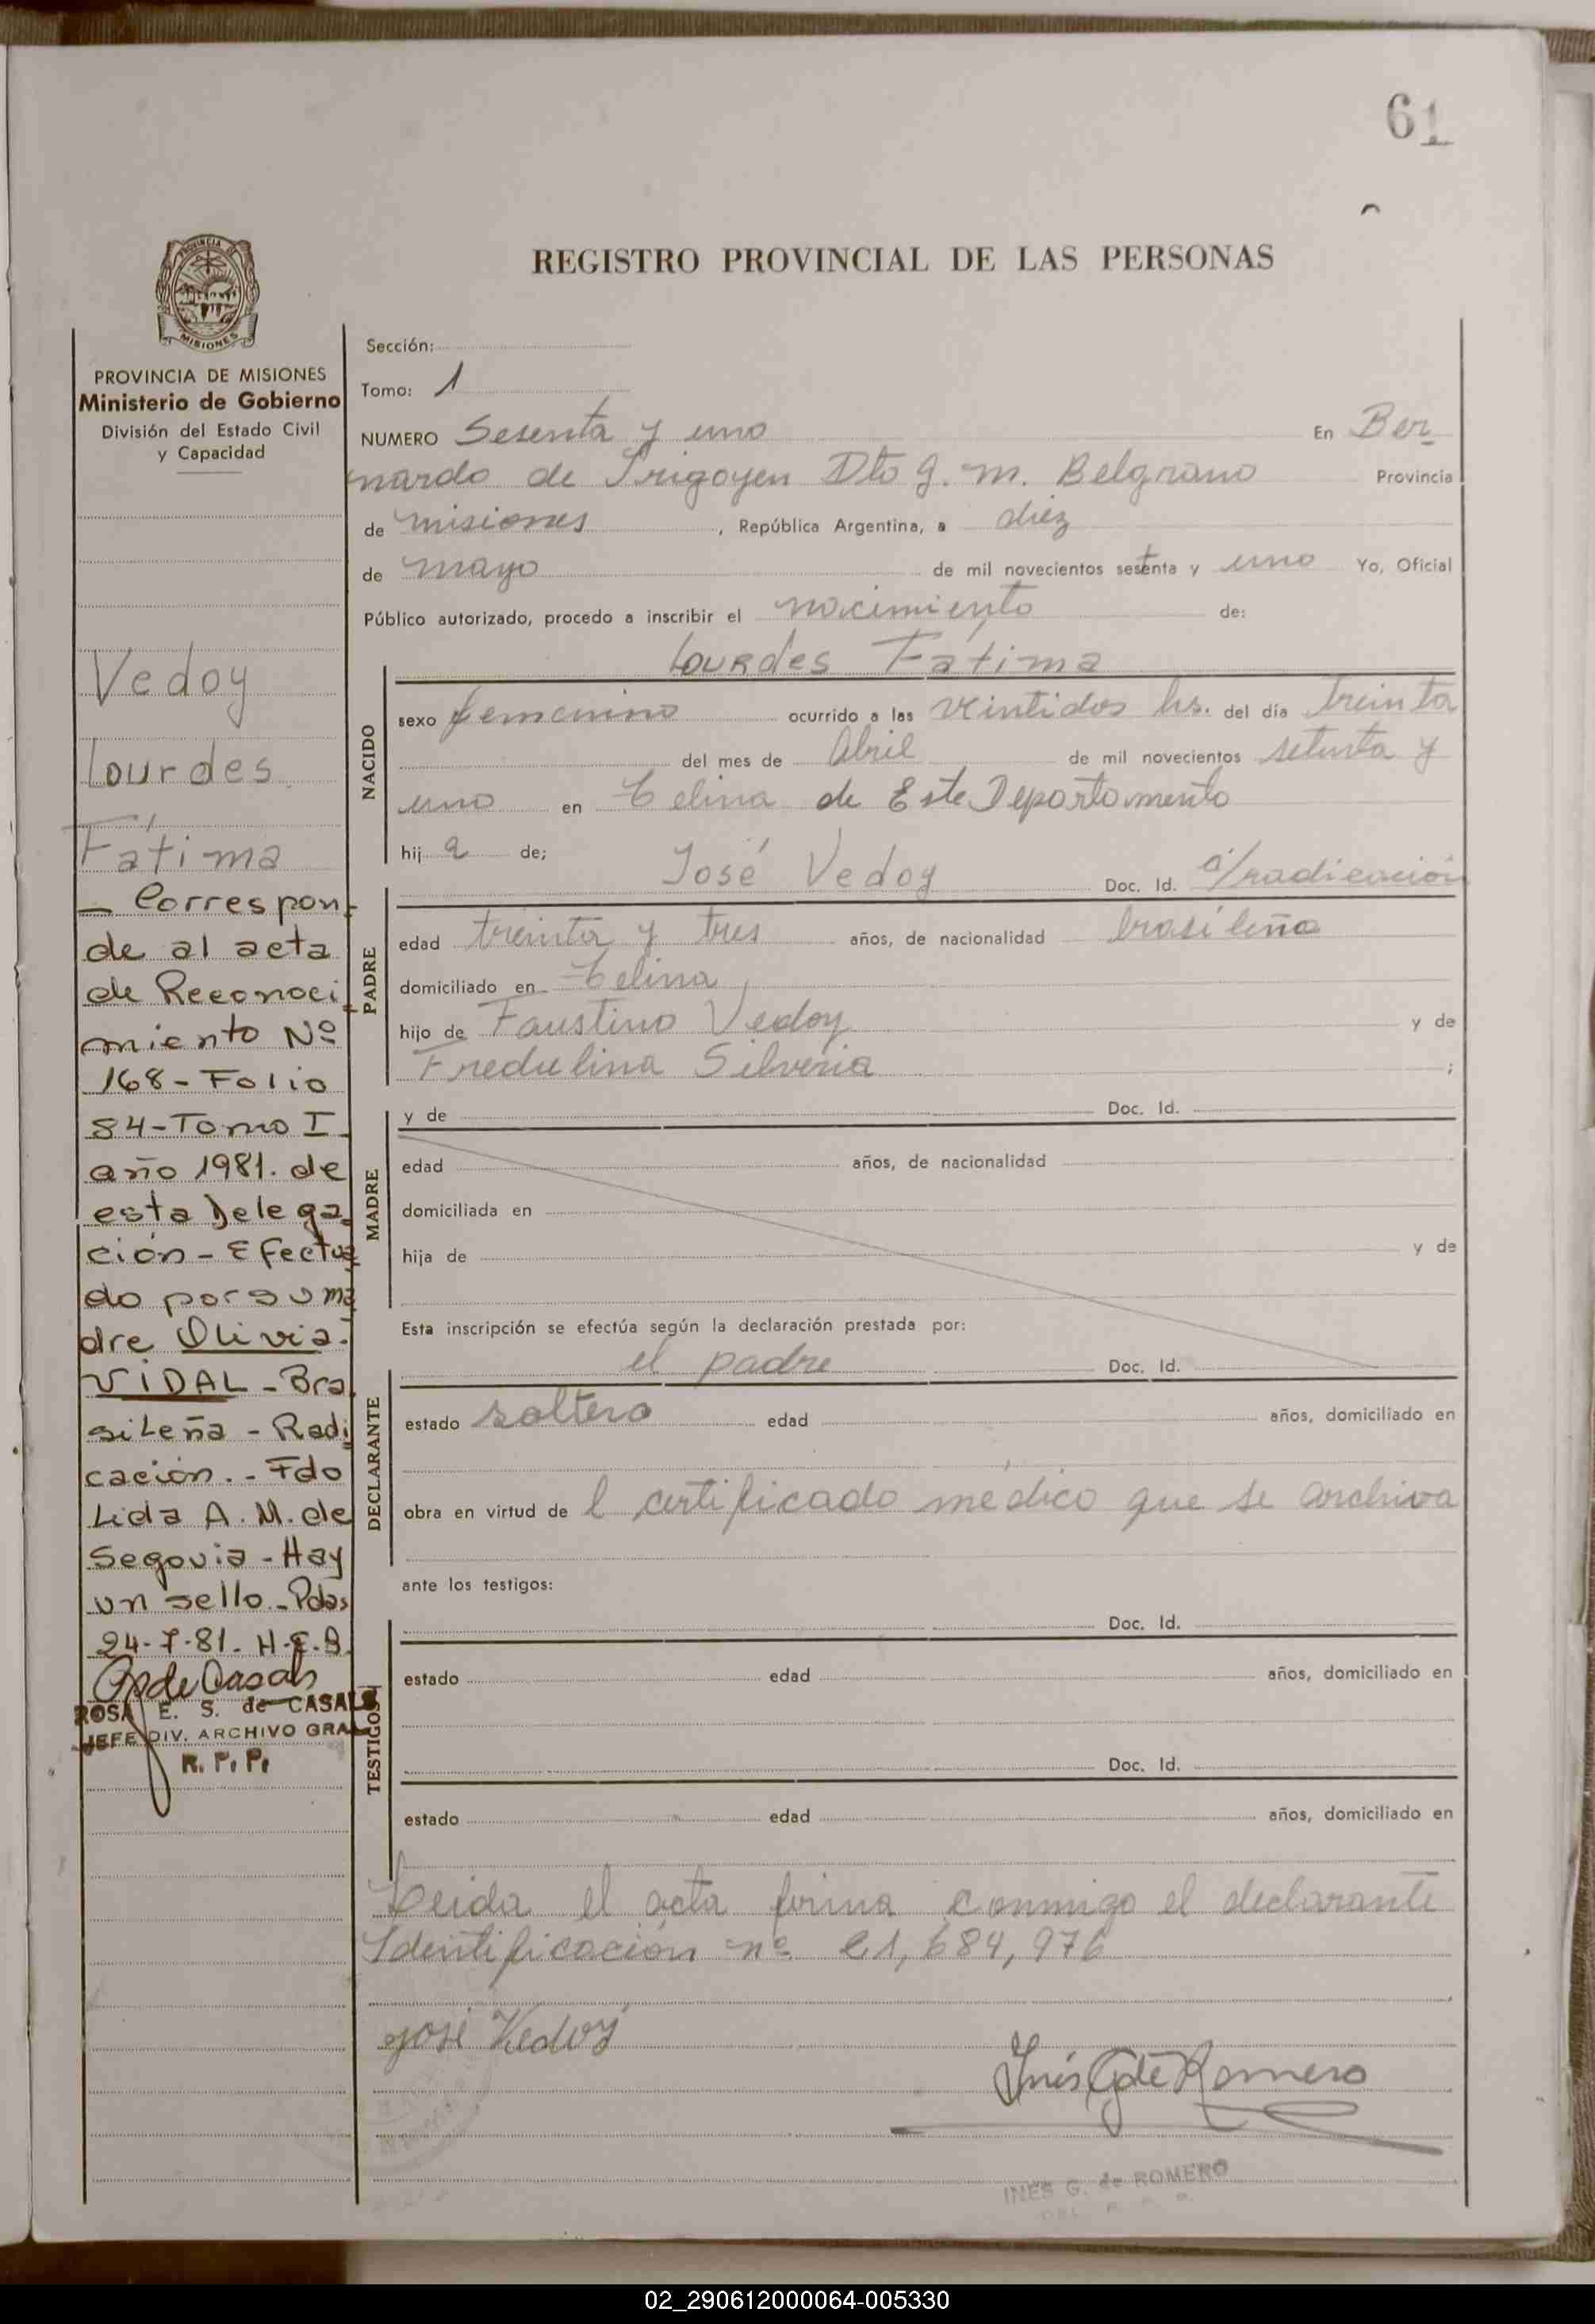 61
REGISTRO PROVINCIAL DE LAS PERSONAS
PROVINCIA
MISIONES
PROVINCIA DE MISIONES
Ministerio de Gobierno
División del Estado Civil
y Capacidad
Vedoy
Lourdes
Fátima
- Correspon-
de al acta
de Reconoci
miento Nº
168 - Folio
84 - Tomo I
año 1981. de
esta Delega
ción - Efectua
do por su ma
dre Olivia.
VIDAL - Bra
sileña - Radi
cación. - Fdo
Lida A. M. de
Segovia - Hay
un sello - Pdas
24-7-81. H.E.B.
ROSA E. S. de CASALS
JEFE DIV. ARCHIVO GRAL
R. P. P.
Sección:
Tomo: 1
NUMERO Sesenta y uno En Ber
nardo de Irigoyen Dto g. m. Belgrano Provincia
de misiones , República Argentina, a diez
de mayo de mil novecientos setenta y uno Yo, Oficial
Público autorizado, procedo a inscribir el nacimiento de:
Lourdes Fátima
NACIDO
sexo femenino ocurrido a las veintidos hs. del día treinta
del mes de Abril de mil novecientos setenta y
uno en Celina de Este Departamento
hij a de;
José Vedoy Doc. Id. radicación
PADRE
edad treinta y tres años, de nacionalidad brasileña
domiciliado en Celina
hijo de Faustino Vedoy y de
Fredulina Silveria ;
y de Doc. Id.
MADRE
edad años, de nacionalidad
domiciliada en
hija de y de
Esta inscripción se efectúa según la declaración prestada por:
el padre Doc. Id.
DECLARANTE
estado soltero edad años, domiciliado en
obra en virtud de l certificado médico que se archiva
ante los testigos:
Doc. Id.
TESTIGOS
estado edad años, domiciliado en
Doc. Id.
estado edad años, domiciliado en
Leida el acta firma conmigo el declarante
Identificación nº C1,684,976
José Vedoy
Inés G de Romero
INES G. de ROMERO
02_290612000064-005330